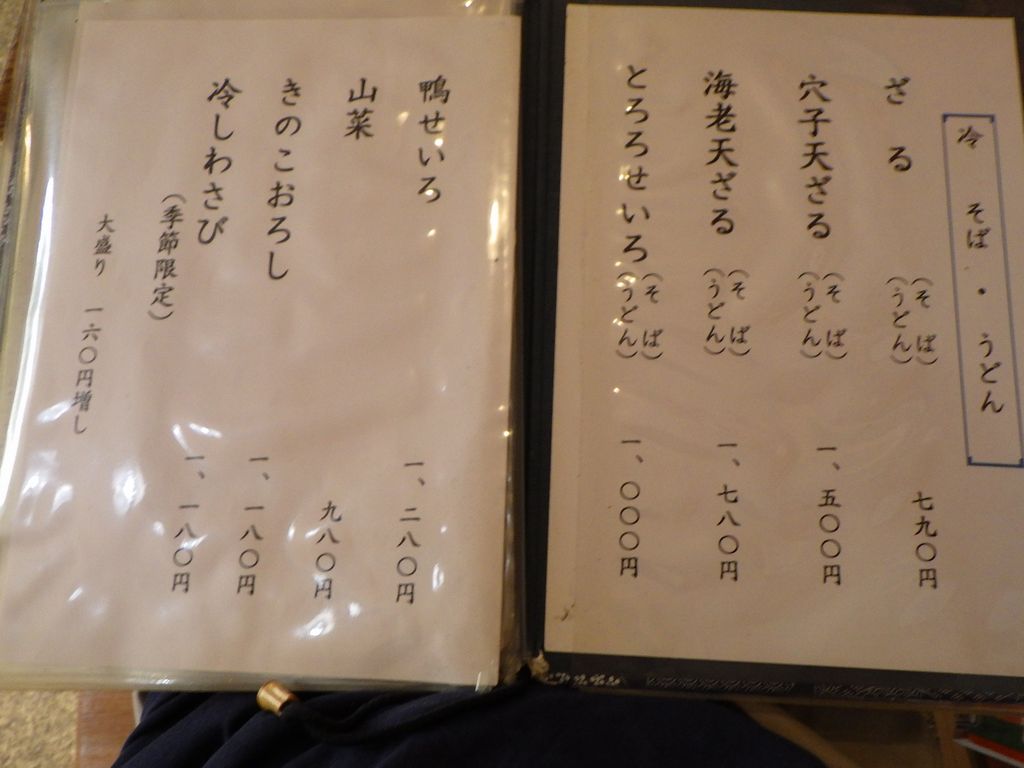 冷 そば・うどん
ざる (そば) (うどん) 七九〇円
穴子天ざる (そば) (うどん) 一、五〇〇円
海老天ざる (そば) (うどん) 一、七八〇円
とろろせいろ (そば) (うどん) 一、〇〇〇円
鴨せいろ 一、二八〇円
山菜 九八〇円
きのこおろし 一、一八〇円
冷しわさび 一、一八〇円
(季節限定)
大盛り 一六〇円増し